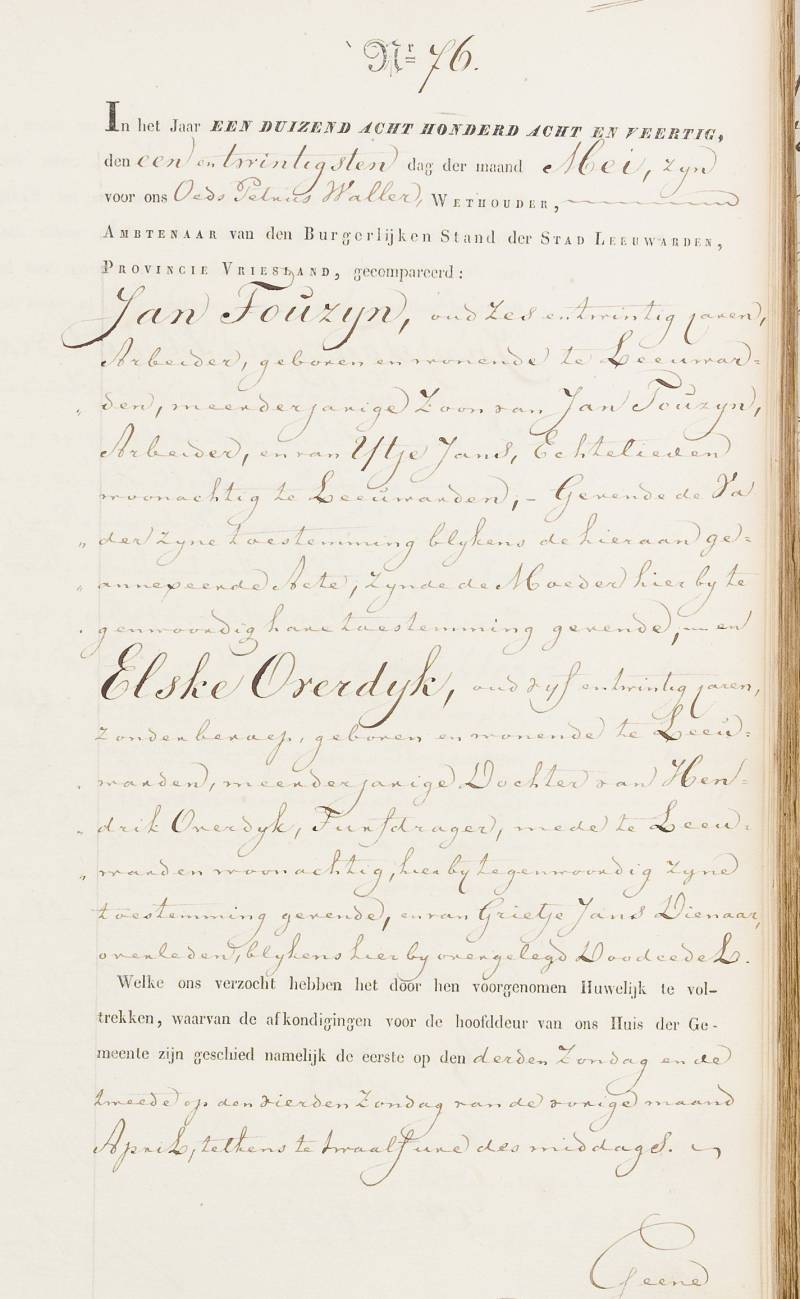 Nr 76.
In het Jaar EEN DUIZEND ACHT HONDERD ACHT EN VEERTIG,
den een en twintigsten dag der maand Mei, zyn
voor ons Oeds Petrus Waller, WETHOUDER,
AMBTENAAR van den Burgerlijken Stand der STAD LEEUWARDEN,
PROVINCIE VRIESLAND, gecompareerd:
Jan Touzyn, oud zes en twintig jaren,
Arbeider, geboren en wonende te Leeuwar=
„ den, meerderjarige Zoon van Jan Touzyn,
Arbeider, en van Ytje Jans, Echtelieden
woonachtig te Leeuwarden, – Gevende de Va
„ der zyne toestemming blykens de hieraan ge=
„ annexeerde Acte, zynde de Moeder hier by te
„ genwoordig hare toestemming gevende, — en
Elske Overdyk, oud vyf en twintig jaren,
zonder beroep, geboren en wonende te Leeu=
„ warden, meerderjarige Dochter van Hen=
„ drik Overdyk, Turfdrager, mede te Leeu=
„ warden woonachtig, hier by tegenwoordig zyne
toestemming gevende, en van Grietje Jans Dienaar,
overleden, blykens hier by overgelegd Doodcedel.
Welke ons verzocht hebben het door hen voorgenomen Huwelijk te vol-
trekken, waarvan de afkondigingen voor de hoofddeur van ons Huis der Ge-
meente zijn geschied namelijk de eerste op den derden Zondag en de
tweede op den vierden Zondag van de vorige maand
April, telkens te twaalf ure des middags.
Geene